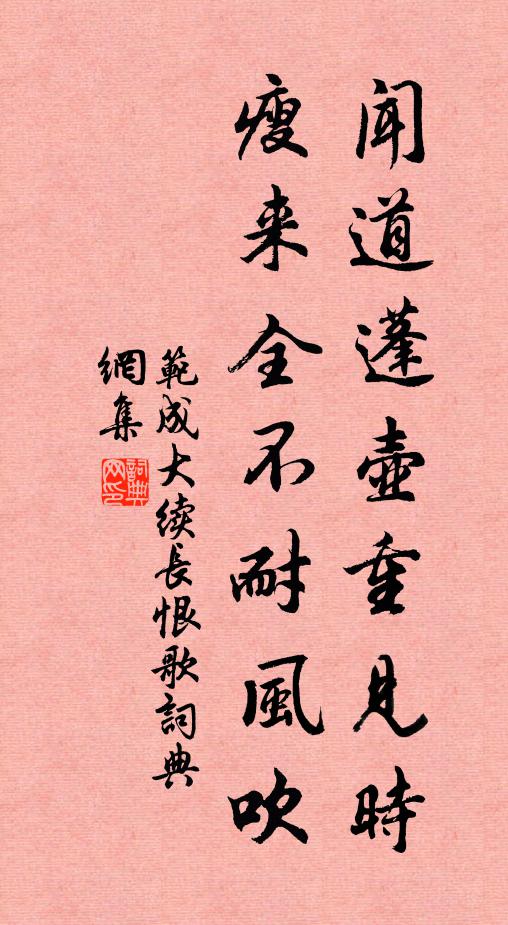 聞道蓬壺重見時
瘦来全不耐風吹
範成大续長恨歌詞典
網集
詞典网印